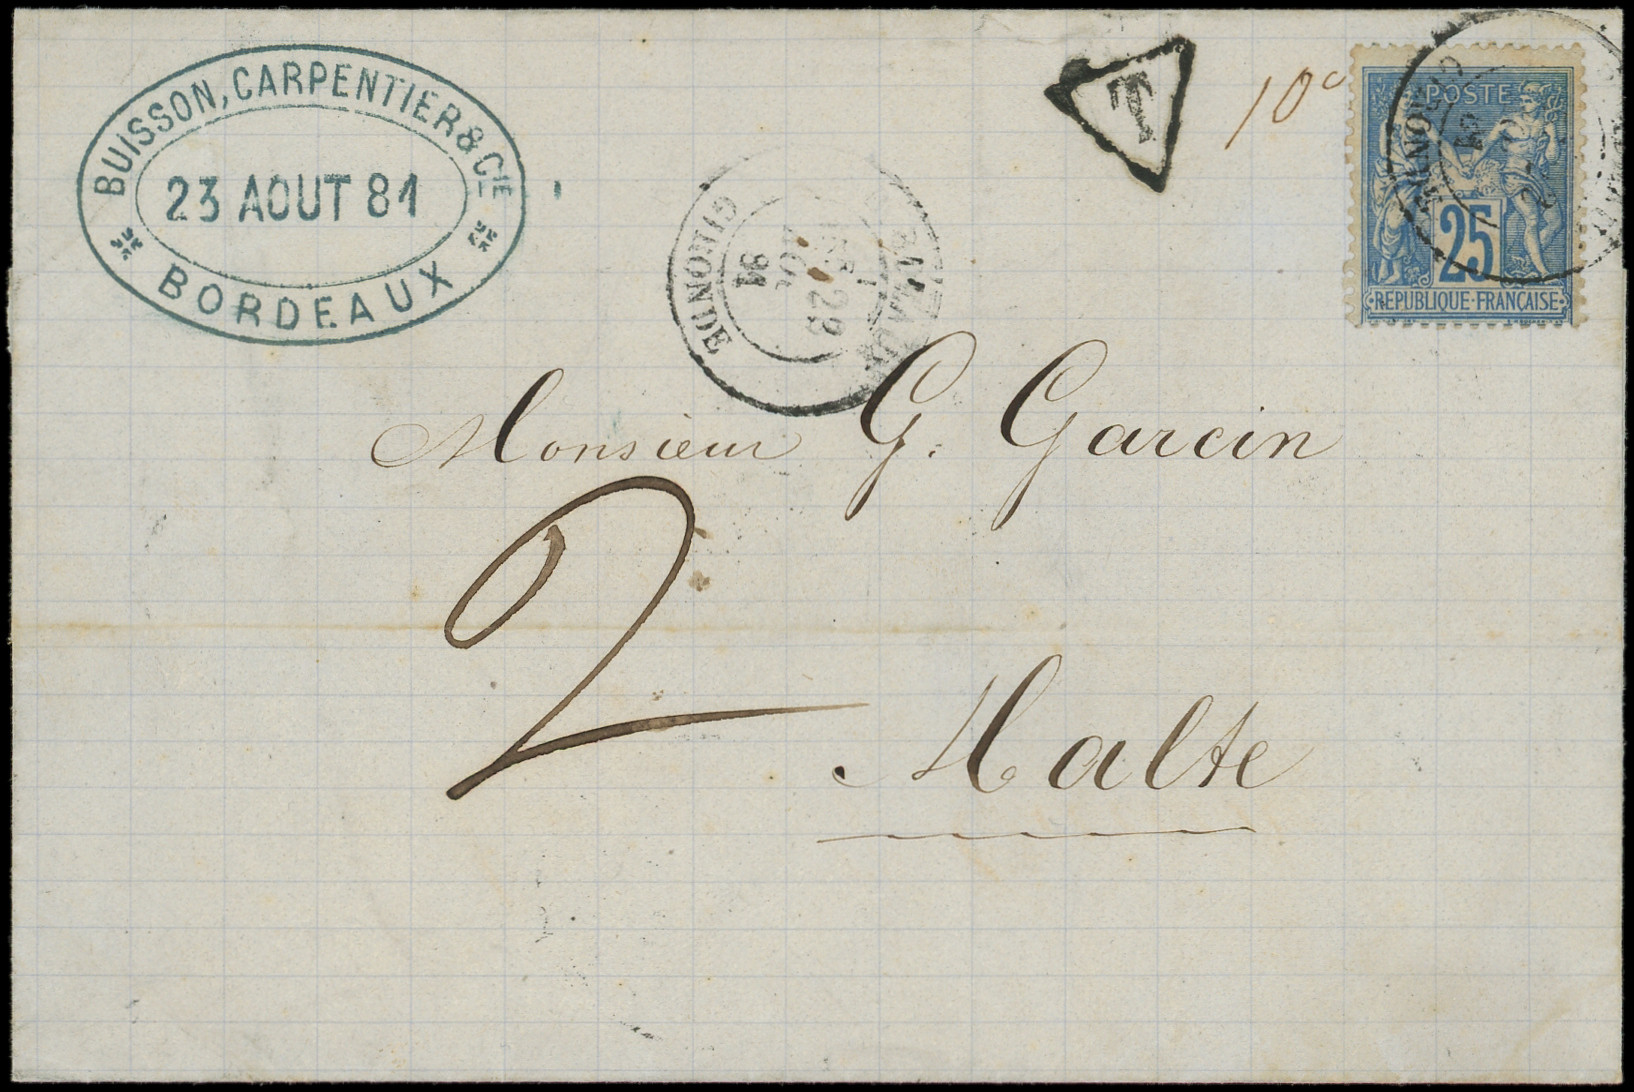 BUISSON, CARPENTIER & CIE
23 AOUT 81
BORDEAUX
T
10c
POSTE
25
REPUBLIQUE FRANÇAISE
GIRONDE
81
BORDEAUX
GIRONDE
Monsieur G. Garcin
2
Malte